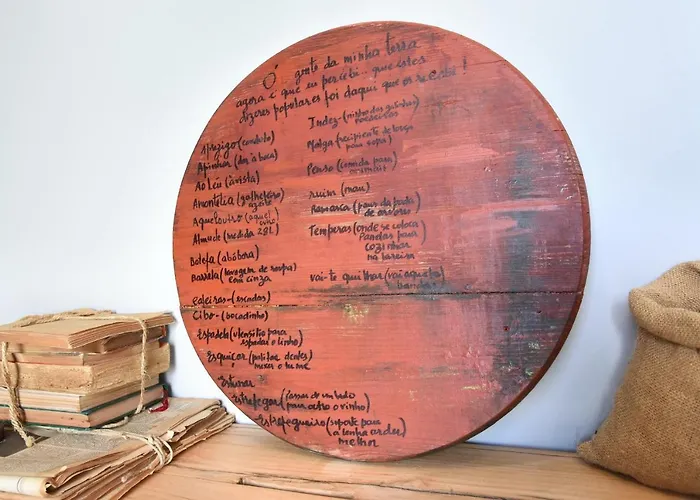 Ó gente da minha terra
agora é que eu percebi que estes
dizeres populares foi daqui que os recebi!
Afazigo (combóio)
Apinhar (dar à boca)
Ao Léu (à vista)
Amontilia (galheteiro
Aqueloutro (aquele
Almude (medida 28L)
Botefa (abóbora)
Barrela (lavagem de roupa
com cinza
Caleiras - (escadas)
Cibo - (bocadinho)
Espadela (utensílio para
espadar o linho)
Esquiçar (politar dedes)
mexer o lume
Estrumar
Estrefegar (passar de um lado
para outro o vinho)
Estrefegueiro (suporte para
a lenha arder
melhor
Index (ninho das galinhas
Malga (recipiente de louça
para sopa)
Penso (comida para
animais)
ruim (mau)
(pano da pada
de
Temperas (onde se coloca
Panelas para
cozinhar
na lareira
vai-te quilhar (vai aquela